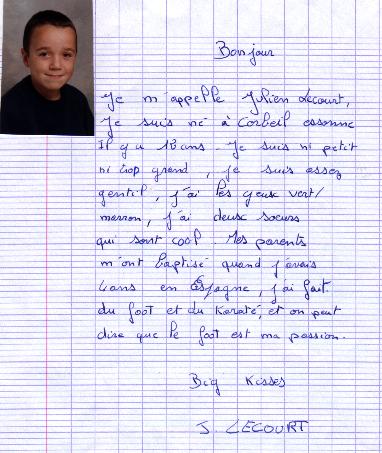 Bonjour
Je m'appelle Julien Lecourt,
Je suis né à Corbeil essonne
Il y a 12 ans. Je suis ni petit
ni trop grand, je suis assez
gentil, j'ai les yeux vert/
marron, j'ai deux soeurs
qui sont cool. Mes parents
m'ont baptisé quand j'avais
4 ans en Espagne, j'ai fait
du foot et du Karaté, et on peut
dire que le foot est ma passion.
Big Kisses
J. LECOURT